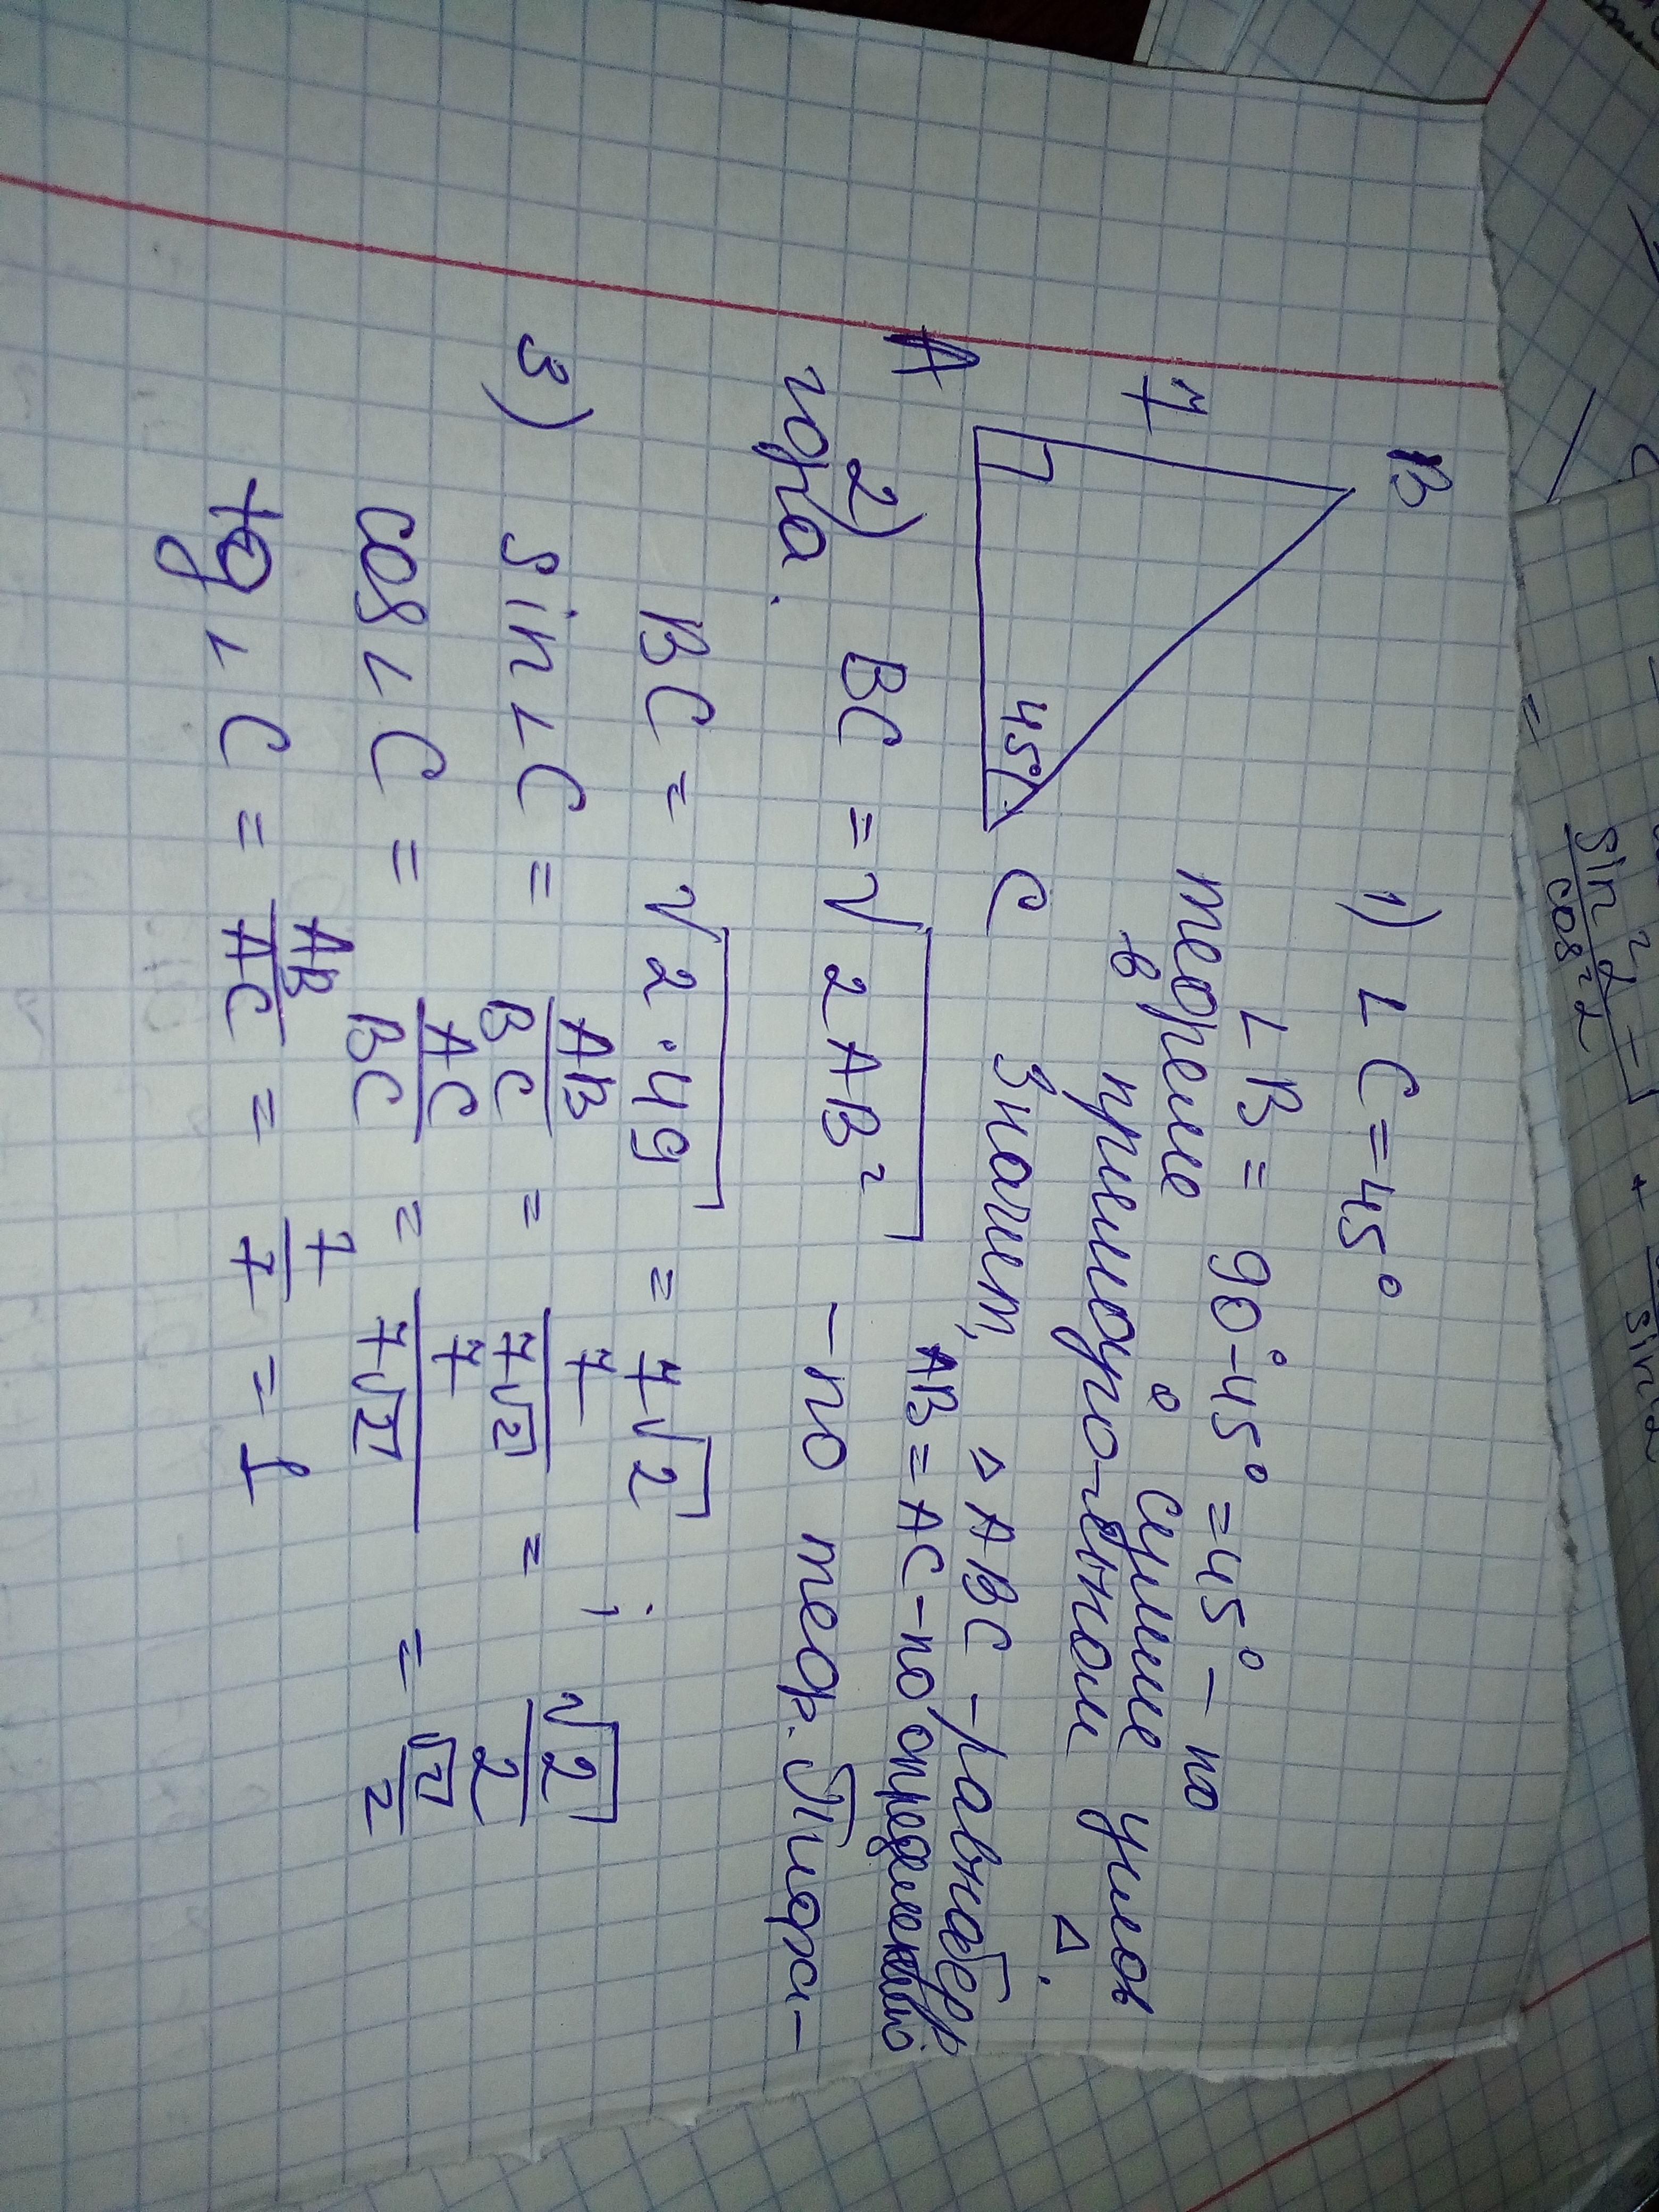 B
7
A
45°
C
1) ∟C = 45°
∟B = 90°-45° = 45° – по
теореме о сумме углов
в прямоуго-льном Δ.
Значит, ΔABC – равнобедр
AB = AC – по определению
2) BC = √2AB² – по теор. Пифа-
гора.
BC = √2·49 = 7√2 ;
3) sin∟C = AB/BC = 7/7√2 = √2/2
cos∟C = AC/BC = 7/7√2 = √2/2
tg∟C = AB/AC = 7/7 = 1